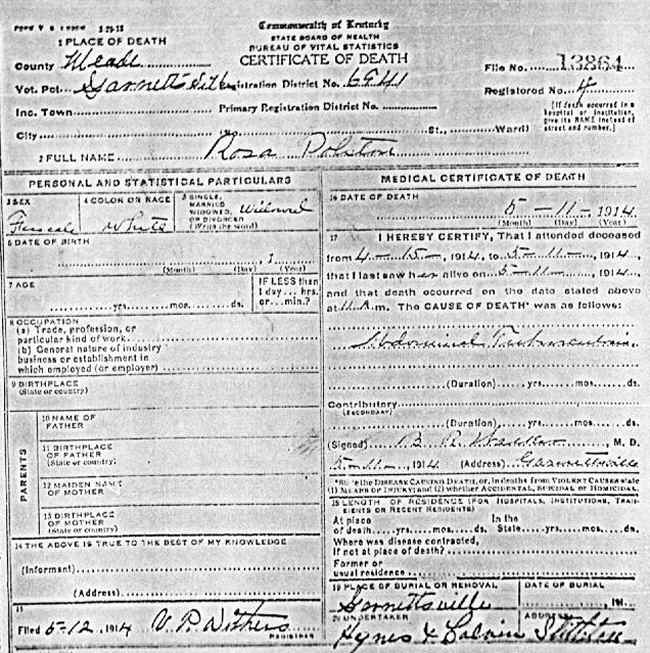 Commonwealth of Kentucky
STATE BOARD OF HEALTH
BUREAU OF VITAL STATISTICS
CERTIFICATE OF DEATH
1 PLACE OF DEATH
County Meade
File No. 13864
Vot. Pct. Garnettsville Registration District No. 6941
Registered No. 4
Inc. Town Primary Registration District No.
[If death occurred in a hospital or institution, give its NAME instead of street and number.]
City No. St., Ward)
2 FULL NAME Rosa Polston
PERSONAL AND STATISTICAL PARTICULARS
3 SEX Female
4 COLOR OR RACE White
5 SINGLE, MARRIED, WIDOWED, OR DIVORCED (Write the word) Widowed
6 DATE OF BIRTH
, 1
(Month) (Day) (Year)
7 AGE
yrs. mos. ds.
IF LESS than
1 day... hrs.
or... min.?
8 OCCUPATION
(a) Trade, profession, or
particular kind of work
(b) General nature of industry
business or establishment in
which employed (or employer)
9 BIRTHPLACE
(State or country)
PARENTS
10 NAME OF
FATHER
11 BIRTHPLACE
OF FATHER
(State or country)
12 MAIDEN NAME
OF MOTHER
13 BIRTHPLACE
OF MOTHER
(State or country)
14 THE ABOVE IS TRUE TO THE BEST OF MY KNOWLEDGE
(Informant)
(Address)
15
Filed 5-12, 1914 V. P. Withers
REGISTRAR
MEDICAL CERTIFICATE OF DEATH
16 DATE OF DEATH
5 - 11 - 1914
(Month) (Day) (Year)
17 I HEREBY CERTIFY, That I attended deceased
from 4-15-, 1914, to 5-11-, 1914,
that I last saw her alive on 5-11-, 1914,
and that death occurred on the date stated above
at 11 a.m. The CAUSE OF DEATH* was as follows:
Abdominal Tuberculosis
(Duration) yrs. mos. ds.
Contributory
(SECONDARY)
(Duration) yrs. mos. ds.
(Signed) M. D.
5-11-, 1914 (Address) Garnettsville
*State the DISEASE CAUSING DEATH, or, in deaths from VIOLENT CAUSES state
(1) MEANS OF INJURY; and (2) whether ACCIDENTAL, SUICIDAL or HOMICIDAL.
18 LENGTH OF RESIDENCE (FOR HOSPITALS, INSTITUTIONS, TRANSIENTS OR RECENT RESIDENTS)
At place In the
of death yrs. mos. ds. State yrs. mos. ds.
Where was disease contracted,
If not at place of death?
Former or
usual residence
19 PLACE OF BURIAL OR REMOVAL
Garnettsville
DATE OF BURIAL
, 191
20 UNDERTAKER
Hynes & Calvin
ADDRESS